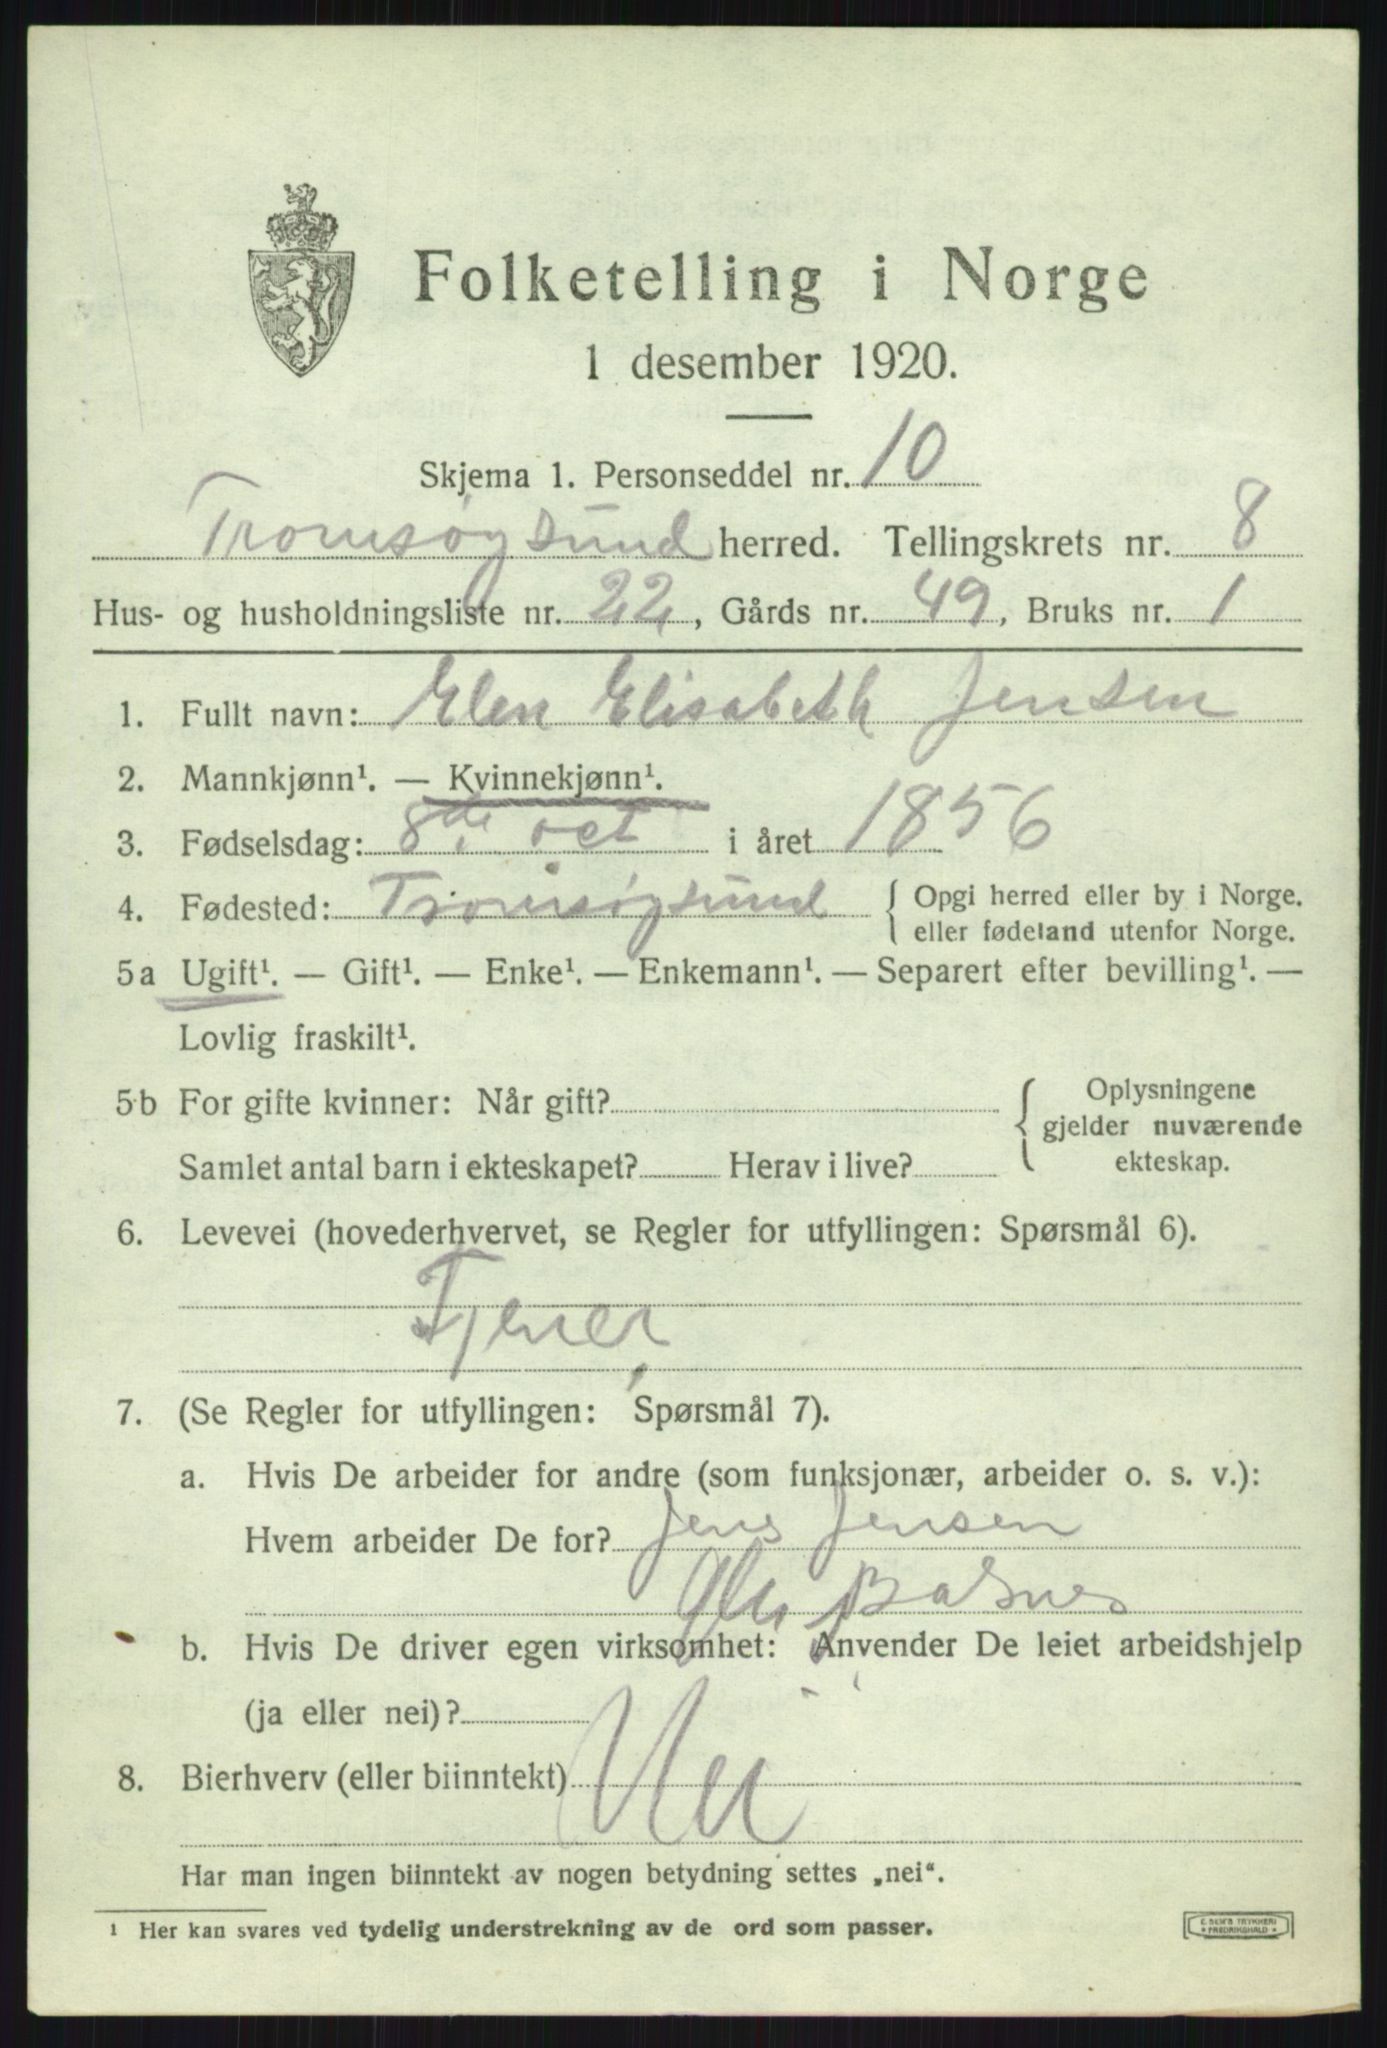 Folketelling i Norge
1 desember 1920.
Skjema 1. Personseddel nr. 10
Tromsøysund herred. Tellingskrets nr. 8
Hus- og husholdningsliste nr. 22, Gårds nr. 49, Bruks nr. 1
1. Fullt navn: Elen Elisabeth Jensen
2. Mannkjønn¹. — Kvinnekjønn¹.
3. Fødselsdag: 8de oct i året 1856
4. Fødested: Tromsøysund { Opgi herred eller by i Norge.
eller fødeland utenfor Norge.
5a Ugift¹. — Gift¹. — Enke¹. — Enkemann¹. — Separert efter bevilling¹. —
Lovlig fraskilt¹.
5b For gifte kvinner: Når gift? { Oplysningene
gjelder nuværende
Samlet antal barn i ekteskapet? Herav i live? ekteskap.
6. Levevei (hovederhvervet, se Regler for utfyllingen: Spørsmål 6).
Tjener
7. (Se Regler for utfyllingen: Spørsmål 7).
a. Hvis De arbeider for andre (som funksjonær, arbeider o. s. v.):
Hvem arbeider De for? Jens Jensen
Balsnes
b. Hvis De driver egen virksomhet: Anvender De leiet arbeidshjelp
(ja eller nei)?
8. Bierhverv (eller biinntekt) Nei
Har man ingen biinntekt av nogen betydning settes „nei“.
¹ Her kan svares ved tydelig understrekning av de ord som passer.
FREDRIKSHALD